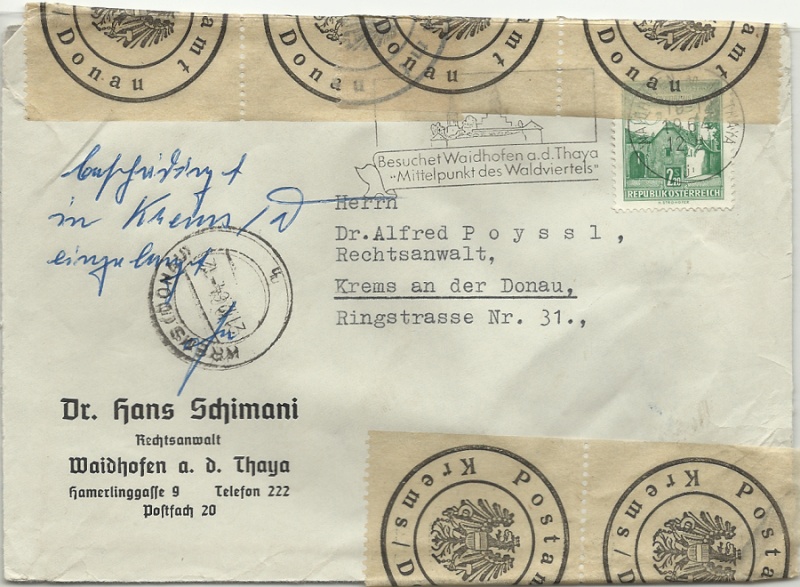 amt
Donau
Donau
Donau
Donau
Besuchet Waidhofen a.d.Thaya
"Mittelpunkt des Waldviertels"
THAYA
12
2.20
REPUBLIK ÖSTERREICH
beschädigt
in Krems/D
eingelangt
Herrn
Dr.Alfred P o y s s l ,
Rechtsanwalt,
Krems an der Donau,
Ringstrasse Nr. 31.,
KREMS
Dr. Hans Schimani
Rechtsanwalt
Waidhofen a. d. Thaya
Hamerlinggasse 9 Telefon 222
Postfach 20
Postamt
Krems/D
Postam
Krems/D